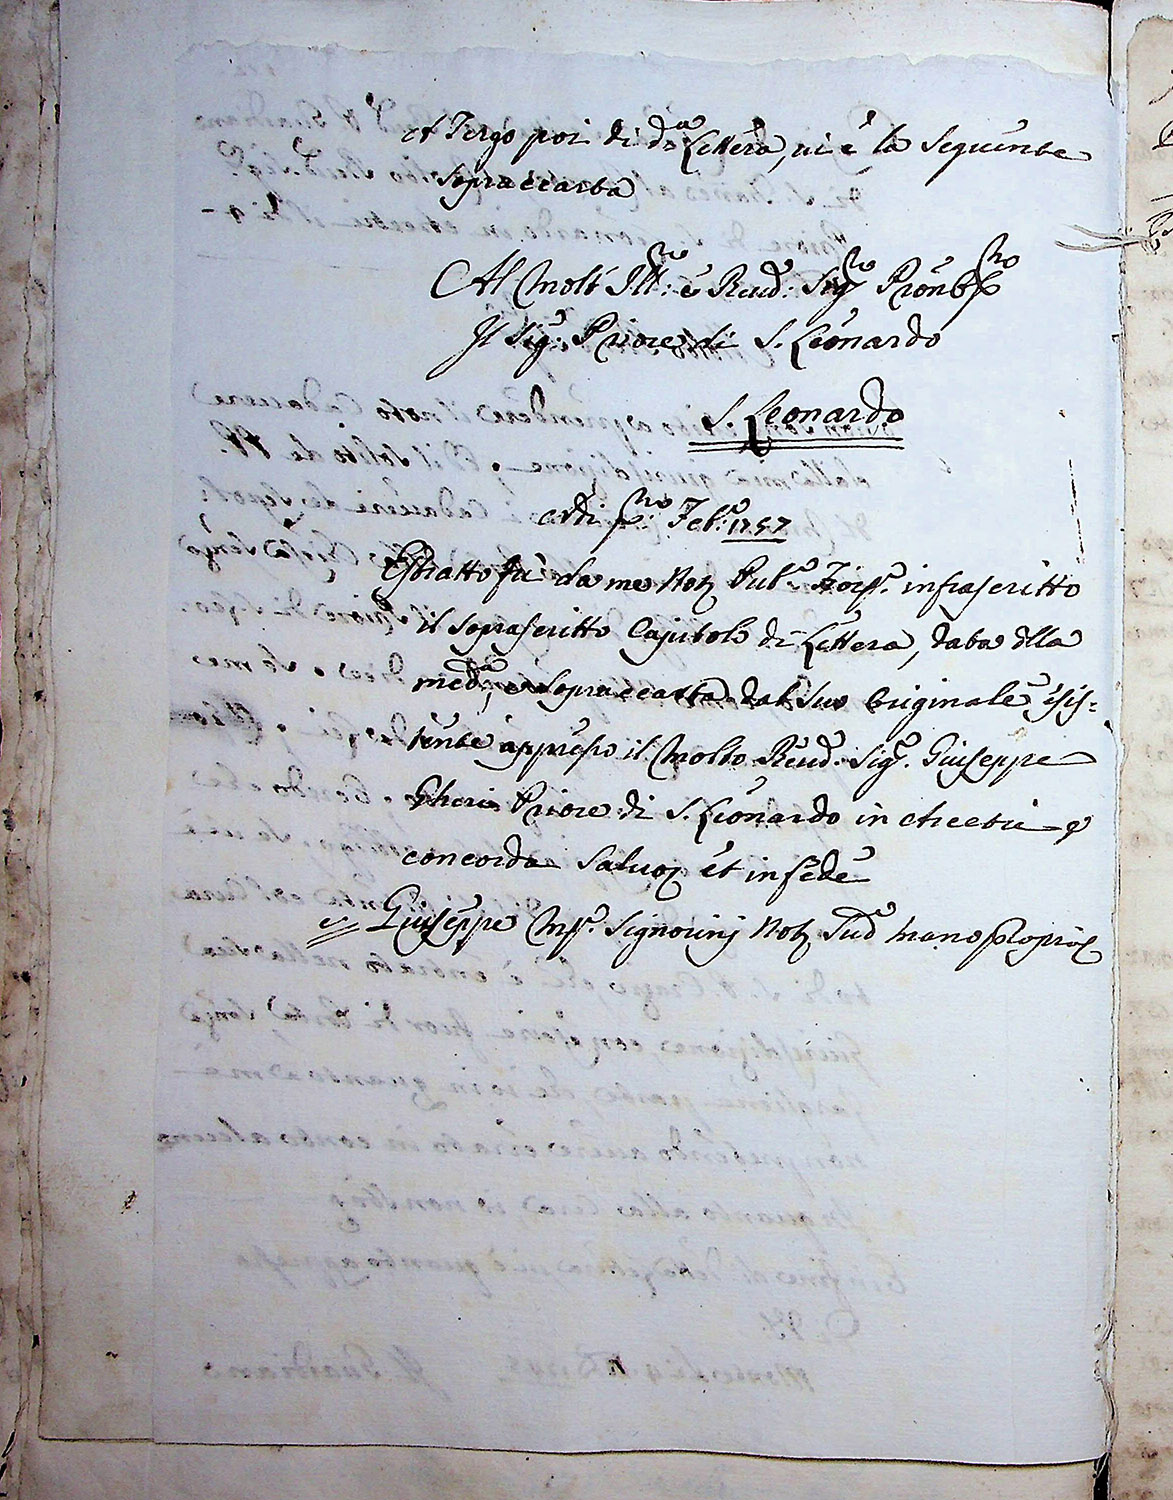 A Tergo poi di d.ª Lettera, vi è la seguente
sopraccarta
Al Molt' Ill: re è Reud: Sig.re Prone
Il Sig: Priore di S. Leonardo
S. Leonardo
Adi p:mo Feb:º 1757
Estratto fù da me Not Pub.º infrascritto
il soprascritto Capitolo di Lettera, data dlla
med.ª, e sopraccarta dal suo Originale esis=
tente appresso il Molto Reud: Sig.r Giuseppe
Gheri Priore di S. Leonardo in Arcetri e
concorda salvo et in fede
Giuseppe M.ª Signorinj Not Sud.º mano propria